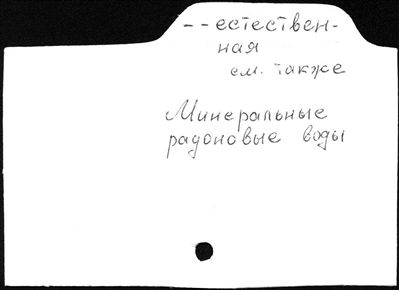 --естествен-
ная
см. также
Минеральные
радоновые воды